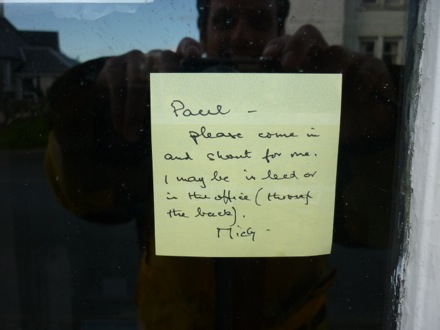 Paul -
please come in
and shout for me.
I may be in bed or
in the office (through
the back).
Mick -